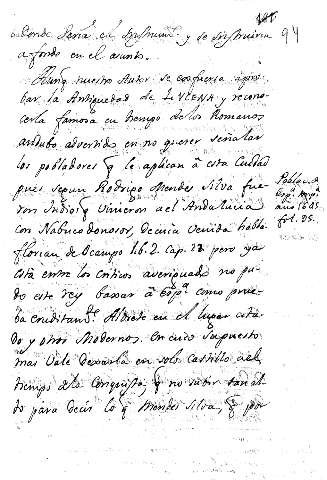 94
adonde será el Instrumto. y se instruira
a fondo en el asunto.
Aunq nuestro Autor se esfuerza a pro-
bar la Antiguedad de LUCENA y recono-
cerla famosa en tiempo de los Romanos
anduvo advertido en no querer señalar
los pobladores q̃ le aplican â esta Ciudad
pues segun Rodrigo Mendes Silva fue-
ron Indios q̃ Vinieron a el Andalucia
con Nabucodonosor, de cuia venida habla
florian de Ocampo lib. 2. Cap. 22. pero ya
está entre los Criticos averiguado no pu-
do este rey baxar â Espa. como prue-
ba eruditamte. Aldrete en el lugar cita-
do y otros Modernos. En cuio supuesto
mas Vale dexarla en solo Castillo a el
tiempo de la Conquista, q̃ no subir tan al-
to para decir lo q̃ Mendes Silva, q̃ por
Poblac. de
Espa.
año 1645
fol. 95.